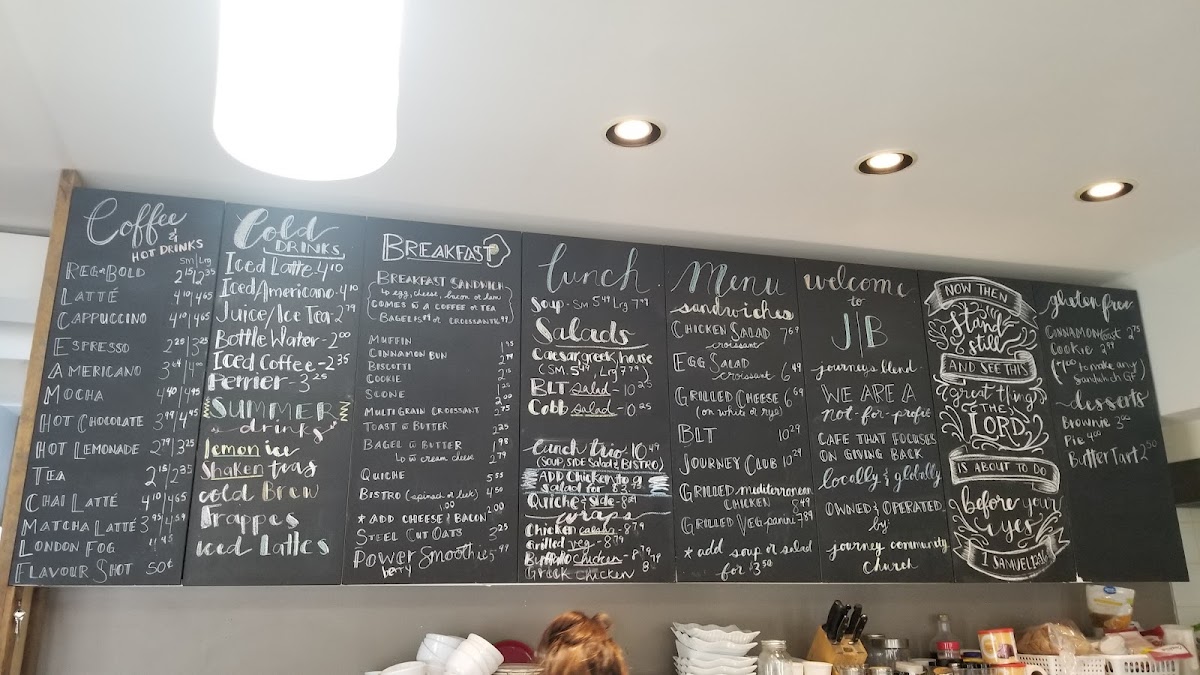 Coffee
& HOT DRINKS
SM | Lrg
REG • BOLD 2.15 | 2.35
LATTÉ 4.10 | 4.65
CAPPUCCINO 4.10 | 4.65
ESPRESSO 2.25 | 3.25
AMERICANO
MOCHA 4.40 | 4.95
HOT CHOCOLATE 3.99 | 4.45
HOT LEMONADE 2.79 | 3.25
TEA 2.15 | 2.35
CHAI LATTÉ 4.10 | 4.65
MATCHA LATTÉ 3.95 | 4.59
LONDON FOG
FLAVOUR SHOT 50¢
Cold
DRINKS
Iced Latte - 4.10
Iced Americano - 4.10
Juice/Ice Tea - 2.79
Bottle Water - 2.00
Iced Coffee - 2.35
Perrier - 3.25
SUMMER
drinks
lemon ice
Shaken teas
cold Brew
Frappes
iced Lattes
BREAKFAST
BREAKFAST SANDWICH
egg, cheese, bacon or ham
COMES W A COFFEE OR TEA
BAGEL OR CROISSANT
MUFFIN 1.95
CINNAMON BUN
BISCOTTI
COOKIE
SCONE 2.00
MULTIGRAIN CROISSANT 2.75
TOAST & BUTTER 2.25
BAGEL & BUTTER 1.98
W cream cheese 2.79
QUICHE 5.55
BISTRO (spinach or leek) 4.50
* ADD CHEESE 1.00 & BACON 2.00
STEEL CUT OATS 3.25
POWER SMOOTHIE 5.49
berry
lunch
Soup - SM 5.49 Lrg 7.79
Salads
Caesar, greek, house
(SM. 5.49 Lrg 7.79)
BLT salad - 10.25
Cobb salad - 10.25
lunch trio 10.49
(SOUP, SIDE Salad & BISTRO)
ADD Chicken to a
salad for
Quiche & side - 8.29
wraps
Chicken caesar - 8.79
Grilled veg - 8.79
Buffalo chicken - 8.79
Greek chicken 8.79
Menu
sandwiches
CHICKEN SALAD 7.59
croissant
EGG SALAD
croissant 6.49
GRILLED CHEESE 6.59
(on white or rye)
BLT 10.29
JOURNEY CLUB 10.29
GRILLED mediterranean
CHICKEN 8.49
GRILLED VEG panini 7.89
* add soup or salad
for $3.50
welcome
to
J|B
journeys blend
WE ARE A
not-for-profit
CAFE THAT FOCUSES
ON GIVING BACK
locally & globally
OWNED & OPERATED
by:
journey community
church
NOW THEN
Stand
still
AND SEE THIS
great thing
THE
LORD
IS ABOUT TO DO
before your
eyes
I SAMUEL 12:16
gluten free
CINNAMON toast 2.75
COOKIE 2.99
(1.00 to make any
sandwich GF)
desserts
Brownie 3.00
Pie 4.00
Butter Tart 2.50